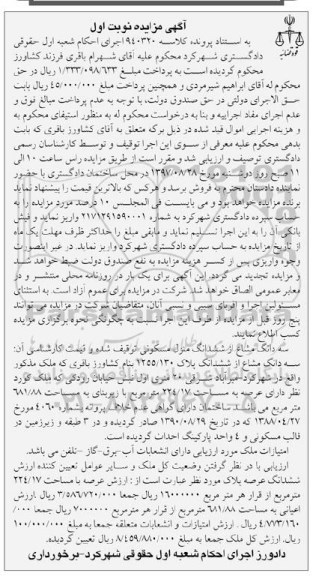 آگهی مزایده نوبت اول
به استناد پرونده کلاسه ۹۴۰۳۲۰ اجرای احکام شعبه اول حقوقی
دادگستری شهرکرد محکوم علیه آقای شهرام باقری فرزند کشاورز
محکوم گردیده است به پرداخت مبلغ ۱/۳۳۳/۰۹۸/۶۳۳ ریال در حق
محکوم له آقای ابراهیم شیرمردی و همچنین پرداخت مبلغ ۴۵/۰۰۰/۰۰۰ ریال بابت
حق الاجرای دولتی در حق صندوق دولت، با توجه به عدم پرداخت مبالغ فوق و
عدم اجرای مفاد اجراییه و بنا به درخواست محکوم له به منظور استیفای محکوم به
و هزینه اجرایی اموال قید شده در ذیل برگه متعلق به آقای کشاورز باقری که بابت
بدهی محکوم علیه معرفی از سوی این اجرا توقیف و توسط کارشناسان رسمی
دادگستری توصیف و ارزیابی شد و مقرر است از طریق مزایده راس ساعت ۱۰ الی
۱۱ صبح روز دوشنبه مورخ ۱۳۹۷/۰۸/۲۸ در محل ساختمان دادگستری با حضور
نماینده دادستان محترم به فروش برسد و هرکس که بالاترین قیمت را پیشنهاد نماید
برنده مزایده خواهد بود و می بایست فی المجلس ۱۰ درصد مورد مزایده را به
حساب سپرده دادگستری شهرکرد به شماره ۲۱۷۱۲۹۱۵۹۰۰۰۱ واریز نماید و فیش
بانکی آن را به این اجرا تسلیم نماید و مابقی مبلغ را حداکثر ظرف مهلت یک ماه
از تاریخ مزایده به حساب سپرده دادگستری شهرکرد واریز نماید. در غیر اینصورت
وجوه واریزی پس از کسر هزینه مزایده به نفع صندوق دولت ضبط خواهد شد
و مزایده تجدید می گردد. این آگهی برای یک بار در روزنامه محلی منتشر و در
معابر عمومی الصاق خواهد شد. شرکت در مزایده برای عموم آزاد است. به استثنای
مسئولین اجرا و اقربای سببی و نسبی آنان، متقاضیان شرکت در مزایده می توانند
پنج روز قبل از مزایده از طرف این اجرا نسبت به چگونگی نحوه برگزاری مزایده
کسب اطلاع نمایند.
سه دانگ مشاع از ششدانگ منزل مسکونی توقیف شده و قیمت کارشناسی آن:
سه دانگ مشاع از ششدانگ پلاک ۲۲۵۵/۱۳۰ بنام کشاورز باقری که ملک مذکور
واقع در شهرکرد-میرآباد شرقی-۲۰ متری اول-نبش خیابان رودکی که ملک مورد
نظر دارای عرصه به مساحت ۲۲۴/۱۷ متر مربع با زیربنای به مساحت ۶۸۱/۸۸
متر مربع می باشد. ساختمان دارای گواهی عدم خلاف پروانه بشماره ۴۰۶۰ مورخ
۱۳۸۸/۰۴/۲۷ که در تاریخ ۱۳۹۰/۰۸/۲۹ صادر گردیده و در ۳ طبقه و زیرزمین در
قالب مسکونی و ۴ واحد پارکینگ احداث گردیده است.
امتیازات ملک مورد ارزیابی دارای انشعابات آب-برق-گاز -تلفن می باشد.
ارزیابی با در نظر گرفتن وضعیت کل ملک و سایر عوامل تعیین کننده ارزش
ششدانگ عرصه پلاک مورد نظر عبارت است از : ارزش عرصه با مساحت ۲۲۴/۱۷
مترمربع از قرار هر متر مربع ۱۶۰۰۰۰۰۰ ریال جمعا ۳/۵۸۶/۷۲۰/۰۰۰ ریال .ارزش
اعیانی به مساحت ۶۸۱/۸۸ مترمربع از قرار هر مترمربع ۷۰۰۰۰۰۰ ریال جمعا
۴/۷۷۳/۱۶۰/۰۰۰ ریال. ارزش امتیازات و انشعابات متعلقه جمعا به مبلغ ۱۰۰/۰۰۰/۰۰۰
ریال. ارزش کل ملک جمعا به مبلغ ۸/۴۵۹/۸۸۰/۰۰۰ ریال تعیین گردیده.
دادورز اجرای احکام شعبه اول حقوقی شهرکرد-برخورداری